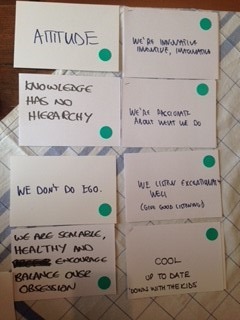 ATTITUDE
WE'RE INNOVATIVE
INCLUSIVE, INFORMATIVE
KNOWLEDGE
HAS NO
HIERARCHY
WE'RE PASSIONATE
ABOUT WHAT WE DO
WE DON'T DO EGO.
WE LISTEN EXCEPTIONALLY
WELL
(GIVE GOOD LISTENING)
WE ARE SCALABLE,
HEALTHY AND
ENCOURAGE
BALANCE OVER
OBSESSION
COOL
UP TO DATE
'DOWN WITH THE KIDS'